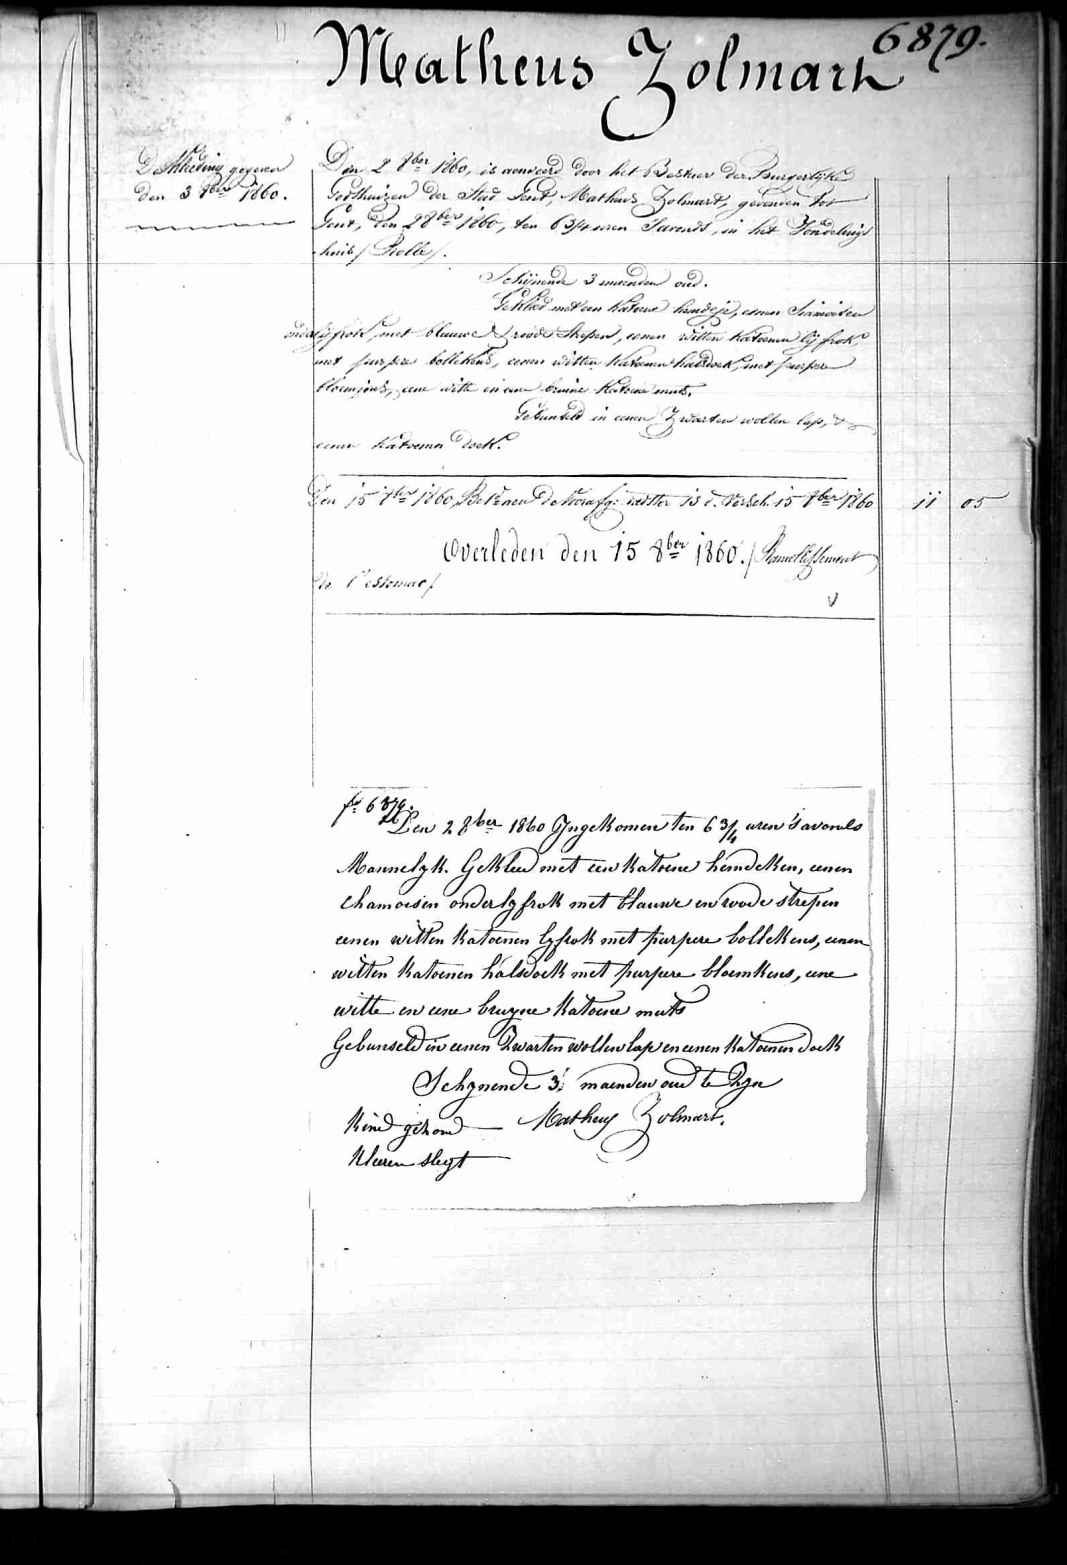 6879.
Matheus Zolmart
gegeven
den 3 8ber 1860.
Den 2 8ber 1860, is aenveerd door het Bestuer der Burgerlijke
Godshuizen der Stad Gent, Matheus Zolmart, gevonden tot
Gent, den 2 8ber 1860, ten 6 3/4 uren Savonds, in het Vondelings
huis / Rolle /.
Schijnende 3 maenden oud.
Gekleed met een katoene hemdeje, eenen Siamoisen
onderlyfrok, met blauwe & roode strepen, eenen witten katoenen lijfrok
met purpere bollekens, eenen witten katoenen halsdoek, met purpere
bloemjens, eene witte en eene bruine katoene muts.
Gebunseld in eenen Zwarten wollen lap, &
eenen katoenen doek.
Den 15 8ber 1860, 15 8ber 1860 11 05
Overleden den 15 8ber 1860. / Ramollissement
de l'estomac /
fo 6879.
Den 2 8ber 1860 Yngekomen ten 6 3/4 uren 's avonds
Mannelyk. Gekleed met een katoene hemdeken, eenen
chamoisen onderlyfrok met blauwe en roode strepen
eenen witten katoenen lyfrok met purpere bollekens, eenen
witten katoenen halsdoek met purpere bloemkens, eene
witte en eene bruyne katoene muts
Gebunseld in eenen Zwarten wollen lap en eenen katoenen doek
Schynende 3 maenden oud te Zyn
Kind gezond — Matheus Zolmart.
Kleeren slegt —